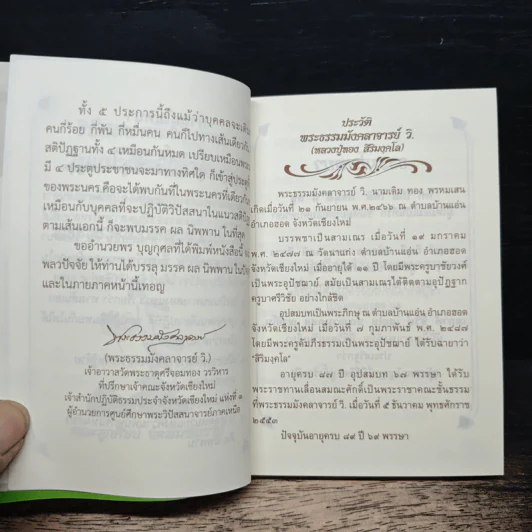 ทั้ง ๕ ประการนี้ถึงแม้ว่าบุคคลจะเดิน
คนกี่ร้อย กี่พัน กี่หมื่นคน คนก็ไปทางเส้นเดียวกัน
สติปัฏฐานทั้ง ๔ เหมือนกันหมด เปรียบเหมือนพระ
มี ๔ ประตูประชาชนจะมาทางทิศใด ก็เข้าสู่ประตู
ของพระนคร คือจะได้พบกันที่ในพระนครที่เดียวกัน
เหมือนกับบุคคลที่จะปฏิบัติวิปัสสนาในแนวสติปัฏ
ตามเส้นเอกนี้ ก็จะพบมรรค ผล นิพพาน ในที่สุด
ขออำนวยพร บุญกุศลที่ได้พิมพ์หนังสือนี้
พลวปัจจัย ให้ท่านได้บรรลุ มรรค ผล นิพพาน ในปัจ
และในภายภาคหน้านี้เทอญ
(พระธรรมมังคลาจารย์ วิ.)
เจ้าอาวาสวัดพระธาตุศรีจอมทอง วรวิหาร
ที่ปรึกษาเจ้าคณะจังหวัดเชียงใหม่
เจ้าสำนักปฏิบัติธรรมประจำจังหวัดเชียงใหม่ แห่งที่ ๑
ผู้อำนวยการศูนย์ศึกษาพระวิปัสสนาจารย์ภาคเหนือ
ประวัติ
พระธรรมมังคลาจารย์ วิ.
(หลวงปู่ทอง สิริมงฺคโล)
พระธรรมมังคลาจารย์ วิ. นามเดิม ทอง พรหมเสน
เกิดเมื่อวันที่ ๒๑ กันยายน พ.ศ.๒๔๖๖ ณ ตำบลบ้านแอ่น
อำเภอฮอด จังหวัดเชียงใหม่
บรรพชาเป็นสามเณร เมื่อวันที่ ๑๙ มกราคม
พ.ศ. ๒๔๗๗ ณ วัดนาแก่ง ตำบลบ้านแอ่น อำเภอฮอด
จังหวัดเชียงใหม่ เมื่ออายุได้ ๑๑ ปี โดยมีพระครูบาชัยวงศ์
เป็นพระอุปัชฌาย์ สมัยเป็นสามเณรได้ติดตามอุปัฏฐาก
ครูบาศรีวิชัย อย่างใกล้ชิด
อุปสมบทเป็นพระภิกษุ ณ ตำบลบ้านแอ่น อำเภอฮอด
จังหวัดเชียงใหม่ เมื่อวันที่ ๗ กุมภาพันธ์ พ.ศ. ๒๔๘๗
โดยมีพระครูคัมภีรธรรมเป็นพระอุปัชฌาย์ ได้รับฉายาว่า
"สิริมงฺคโล"
อายุครบ ๘๗ ปี อุปสมบท ๖๗ พรรษา ได้รับ
พระราชทานเลื่อนสมณะศักดิ์เป็นพระราชาคณะชั้นธรรม
ที่พระธรรมมังคลาจารย์ วิ. เมื่อวันที่ ๕ ธันวาคม พุทธศักราช
๒๕๕๓
ปัจจุบันอายุครบ ๘๙ ปี ๖๙ พรรษา